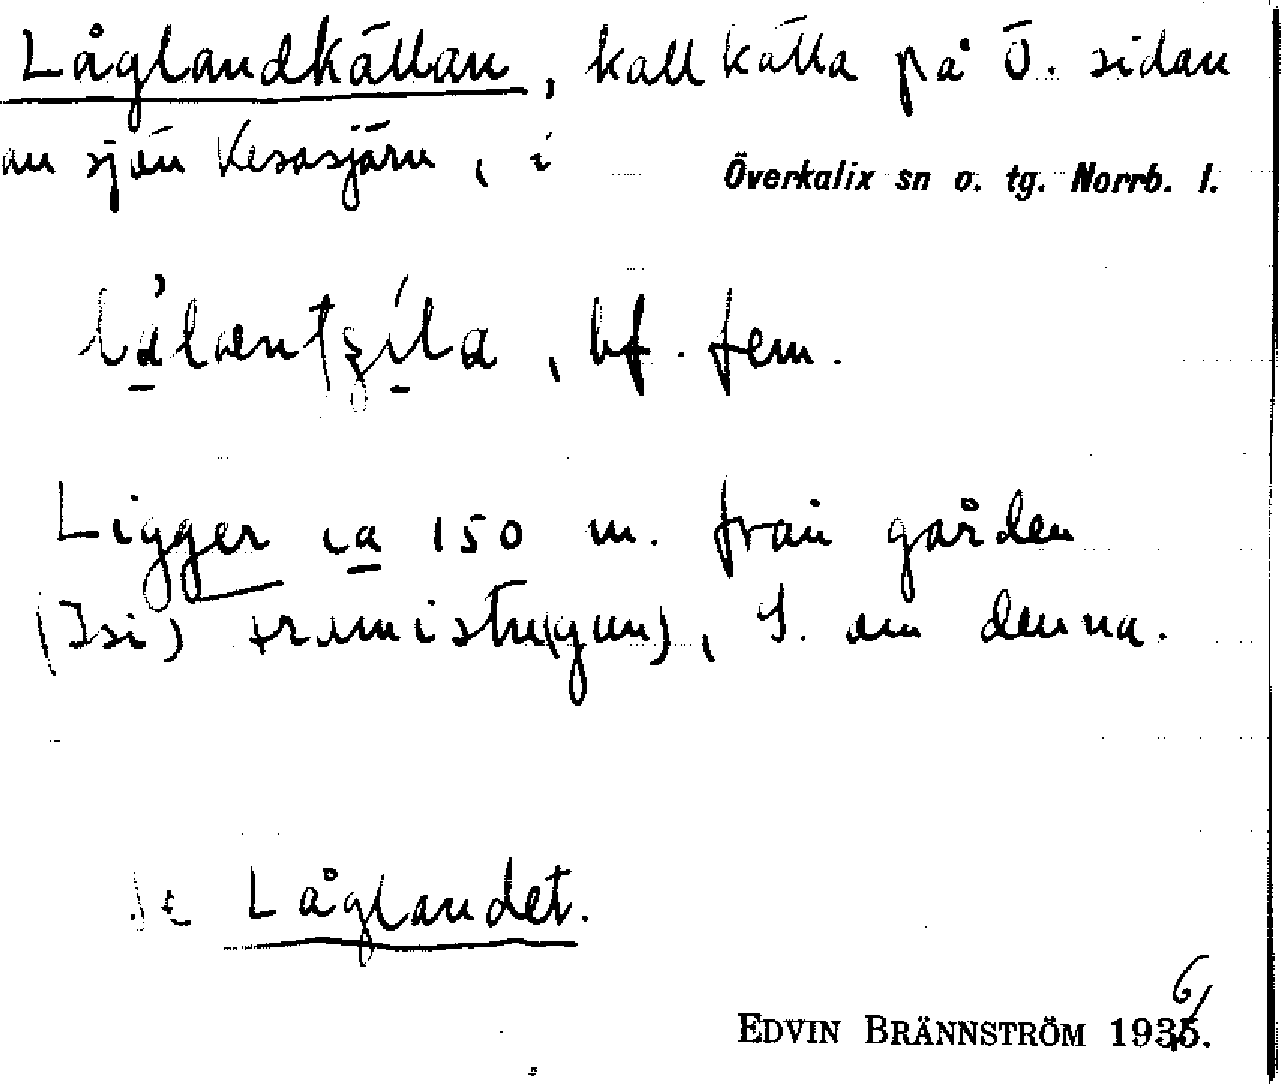 Låglandkällan, kall källa på Ö. sidan
av sjön Kesasjärv, i Överkalix sn o. tg. Norrb. l.
bf. fem.
Ligger ca 150 m. från gården
(Isi) , S. om denna.
Se Låglandet.
EDVIN BRÄNNSTRÖM 1936.